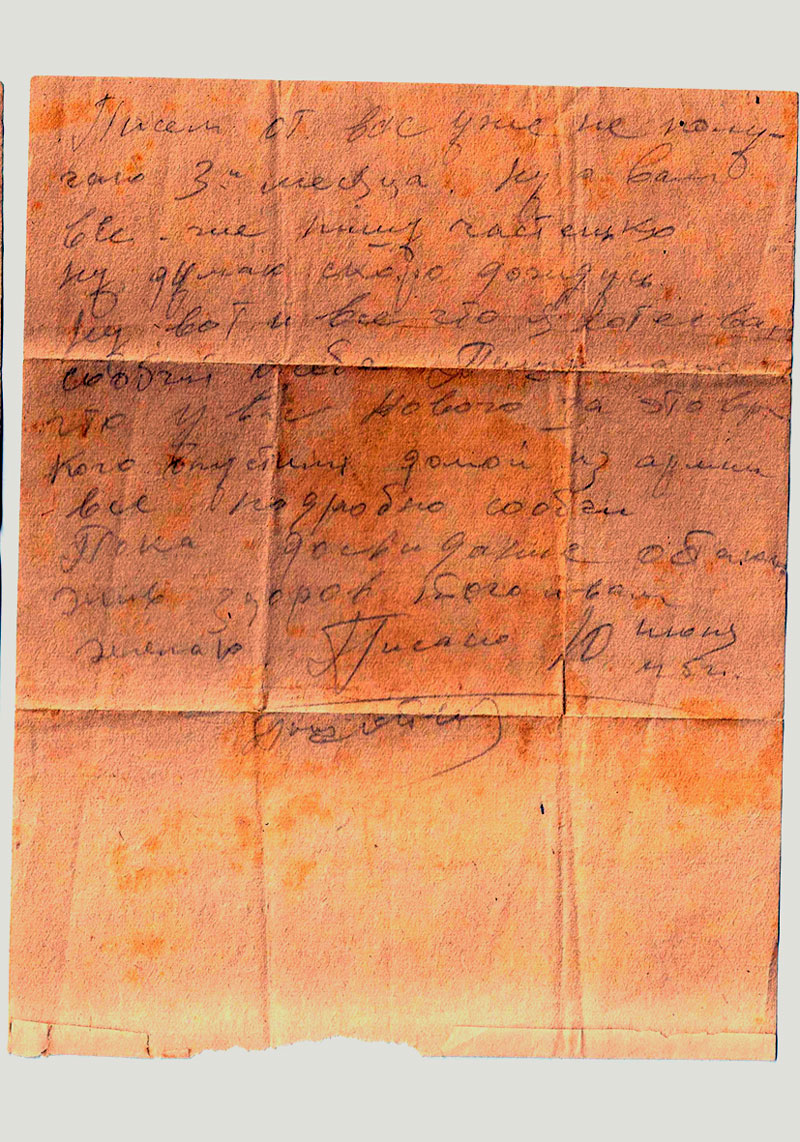 Писем от вас уже не полу-
чаю 3и месяца. Ну я вам
все-же пишу частецько
ну думаю скоро дождусь
Ну вот и все что я хотел вам
сообчи о себе
что у вас нового за это вре
кого отпустили домой из армии
все подробно сообчи
Пока досвидание остаюсь
жив здоров того и вам
желаю. Писано 10 июня
45 г.